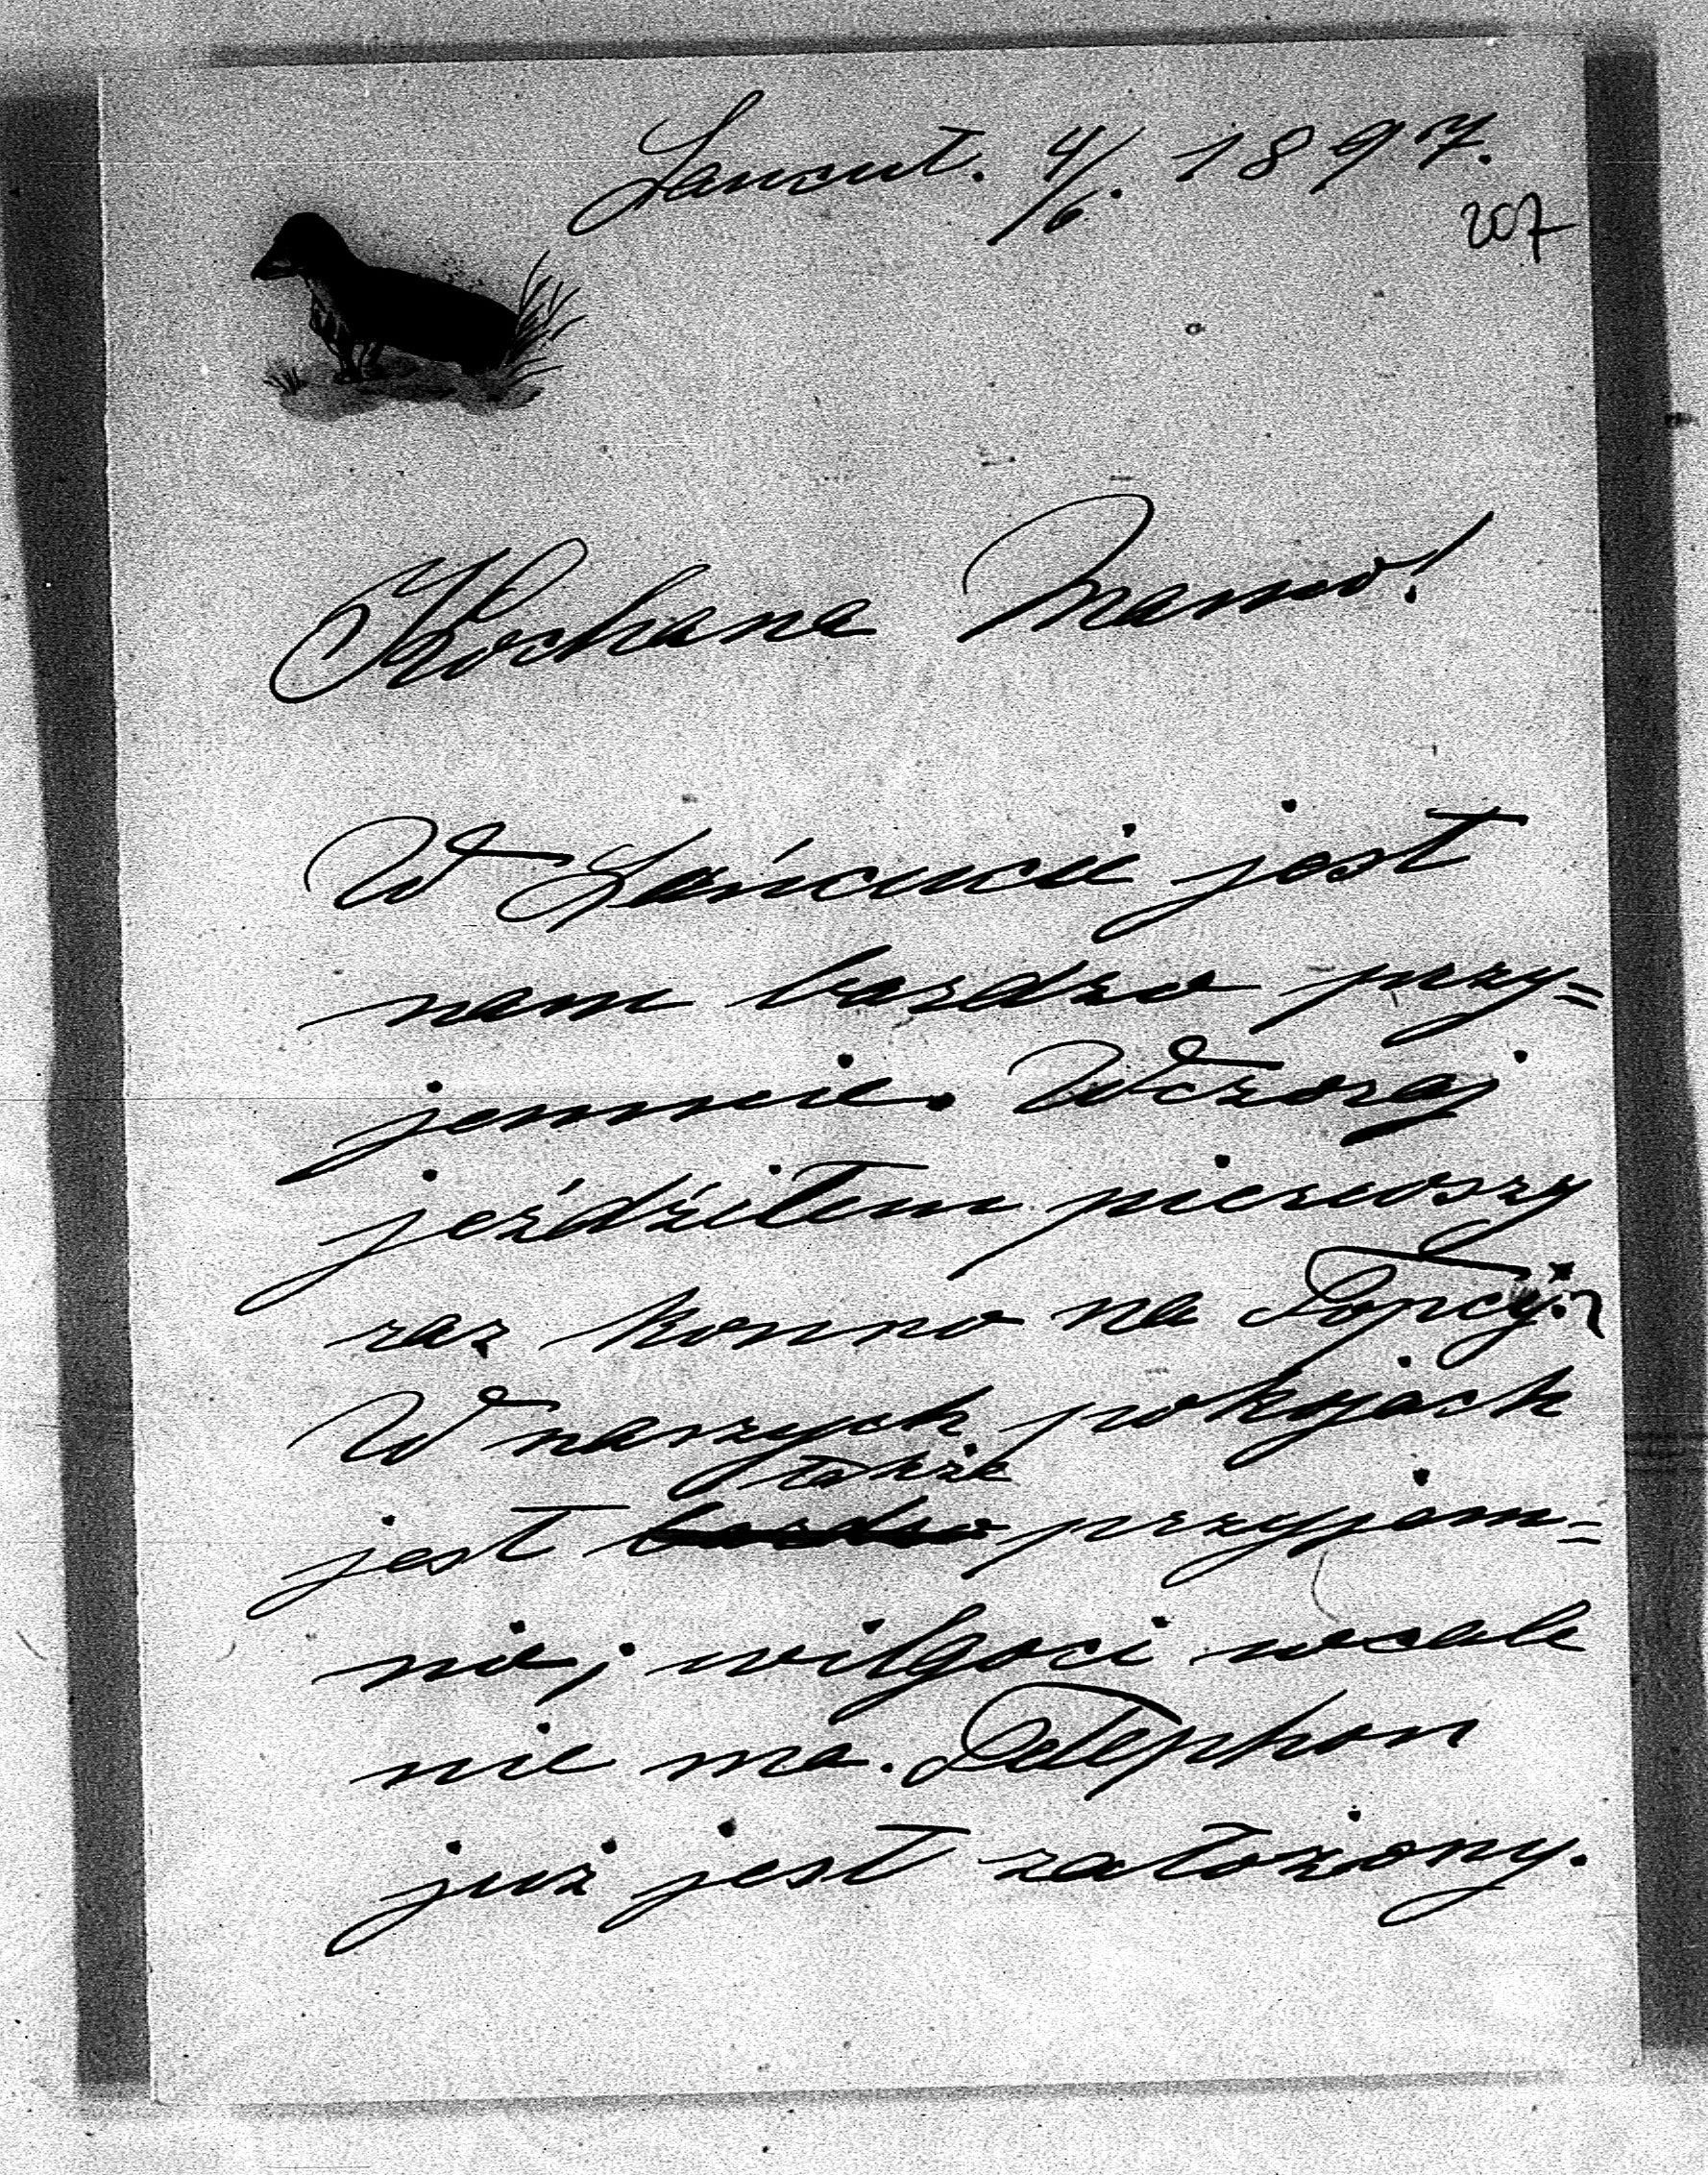 Łancut. 4/6. 1897.
207
Kochana Mamo!
W Łańcucie jest
nam bardzo przy=
jemnie. Wczoraj
jeździłem pierwszy
raz konno na
W naszych pokojach
także
jest bardzo przyjem=
nie; wilgoci wcale
nie ma. Telephon
już jest założony.